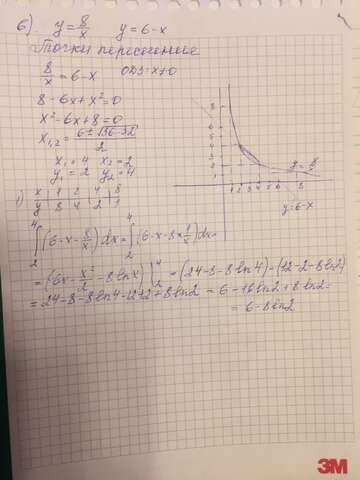 6). y = 8/x   y = 6-x
Точки пересечение
8/x = 6-x   ОДЗ: x≠0
8 - 6x + x² = 0
x² - 6x + 8 = 0
x₁,₂ = (6 ± √(36-32))/2
x₁ = 4   x₂ = 2
y₁ = 2   y₂ = 4
1) x | 1 | 2 | 4 | 8
y | 8 | 4 | 2 | 1
y = 8/x
y = 6-x
∫₂⁴ (6-x-8/x)dx = ∫₂⁴ (6-x-8*1/x)dx =
= (6x - x²/2 - 8lnx)|₂⁴ = (24-8-8ln4)-(12-2-8ln2)
= 24-8-8ln4-12+2+8ln2 = 6-16ln2+8ln2=
= 6-8ln2
3M